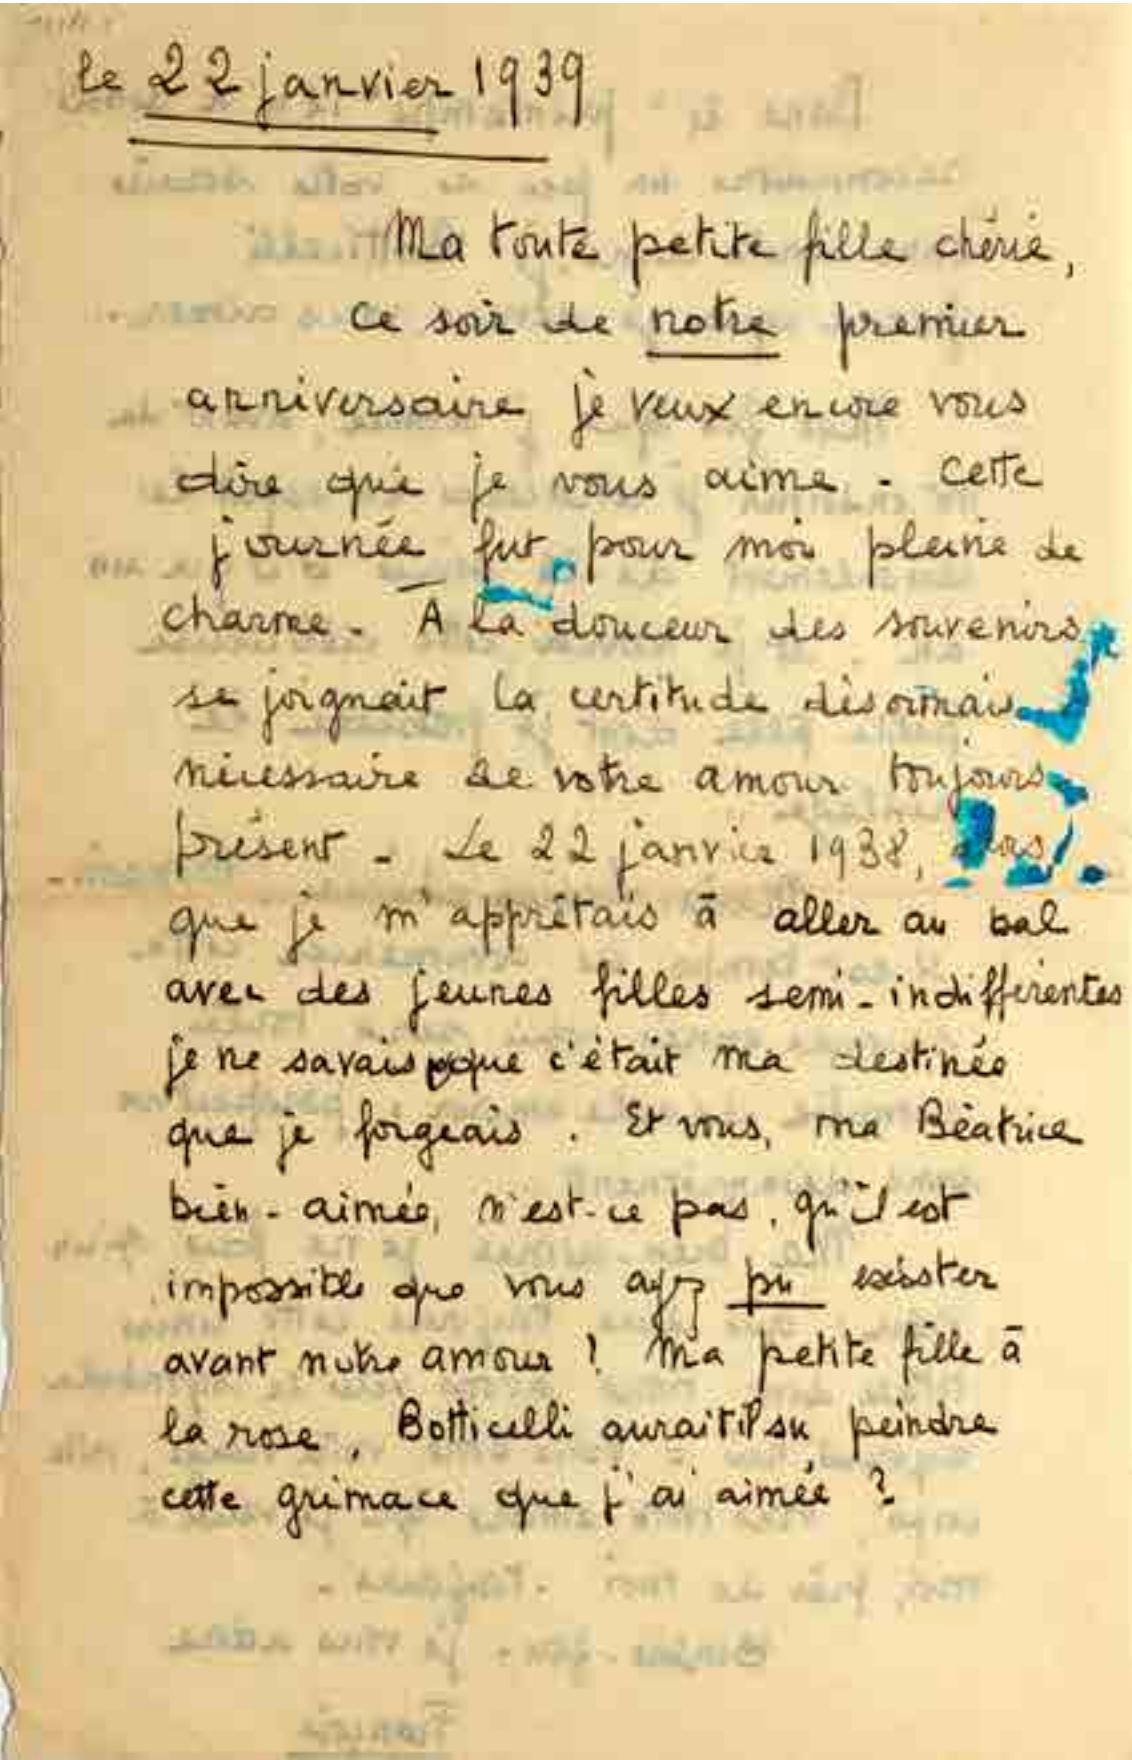 le 22 janvier 1939
Ma toute petite fille chérie,
Ce soir de notre premier
anniversaire je veux encore vous
dire que je vous aime. Cette
journée fut pour moi pleine de
charme. À la douceur des souvenirs
se joignait la certitude désormais
nécessaire de votre amour toujours
présent. Le 22 janvier 1938,
que je m'apprêtais à aller au bal
avec des jeunes filles semi-indifférentes
je ne savais que c'était ma destinée
que je forgeais. Et vous, ma Béatrice
bien-aimée, n'est-ce pas, qu'il est
impossible que vous ayez pu exister
avant notre amour ? Ma petite fille à
la rose, Botticelli aurait il su peindre
cette grimace que j'ai aimée ?